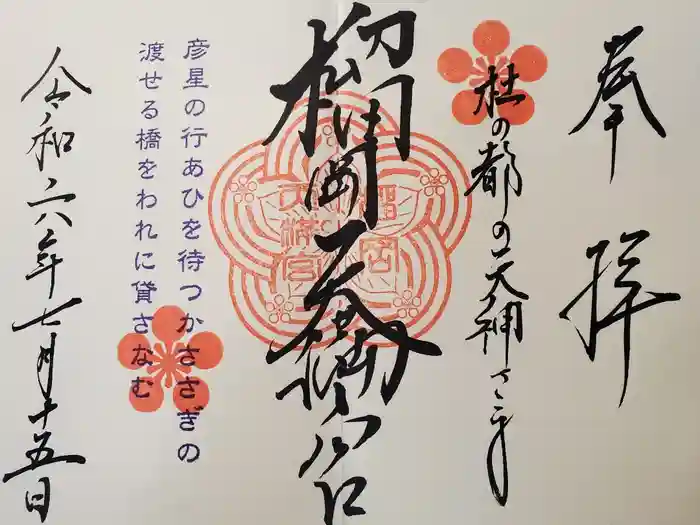 奉拝
杜の都の天神さま
榴岡天満宮
彦星の行あひを待つかささぎの
渡せる橋をわれに貸さなむ
令和六年七月十五日